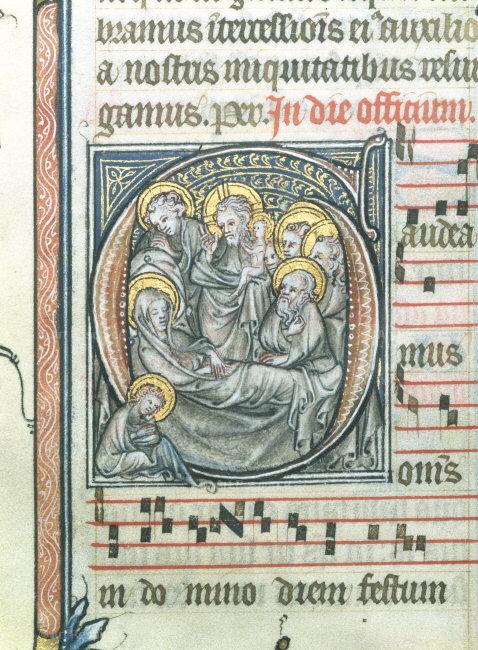 bramus ĩtercessiõis eiꝰ auxilio
a nostris iniquitatibus resur
gamus. per. In die officium.
Gaudea
mus
om̃s
in do mino diem festum